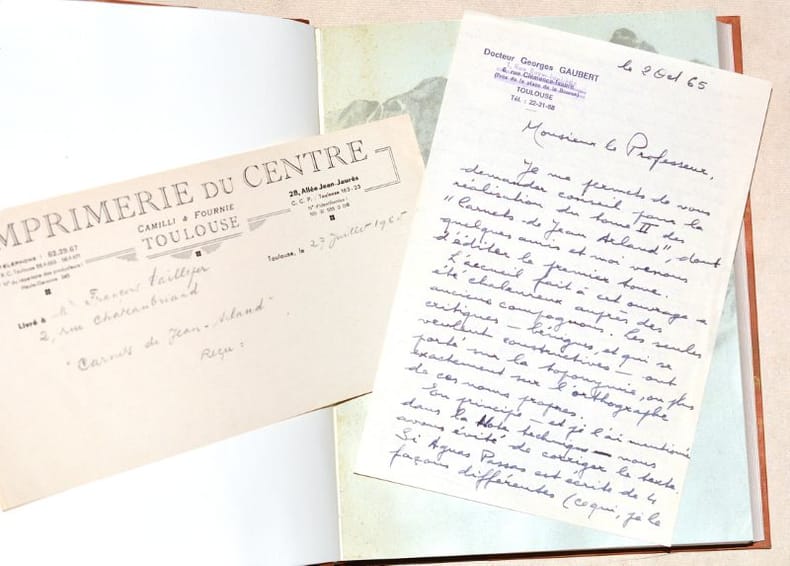 IMPRIMERIE DU CENTRE
CAMILLI & FOURNIE
TOULOUSE
28, Allée Jean-Jaurès
C. C. P. : Toulouse 163-23
N° d'identification :
TÉLÉPHONE : 62.29.67
N° du répertoire des producteurs :
Haute-Garonne
Toulouse, le 27 juillet 1965
Livré à Mr François
2, rue Chateaubriand
"Carnets de Jean-Arlaud"
Reçu :
Docteur Georges GAUBERT
6, rue Clémence-Isaure
(Près de la place de la Bourse)
TOULOUSE
Tél. : 22-21-68
le 2 Oct 65
Monsieur le Professeur,
Je me permets de vous
demander conseil pour la
réalisation du tome II des
"Carnets de Jean Arlaud", dont
quelques amis et moi venons
d'éditer le premier tome.
L'accueil fait à cet ouvrage a
été chaleureux auprès des
anciens compagnons. Les seules
critiques – bénignes, et qui se
veulent constructives – ont
porté sur la toponymie, ou plus
exactement sur l'orthographe
de ces noms propres.
En principe – et je l'ai mentionné
dans la Note technique – nous
avons évité de corriger le texte.
Si Aygues Passes est écrit de 4
façons différentes (ce qui, je le